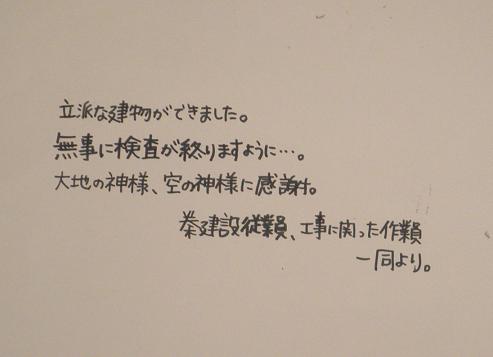 立派な建物ができました。
無事に検査が終りますように…。
大地の神様、空の神様に感謝。
秦建設従業員、工事に関った作業員
一同より。